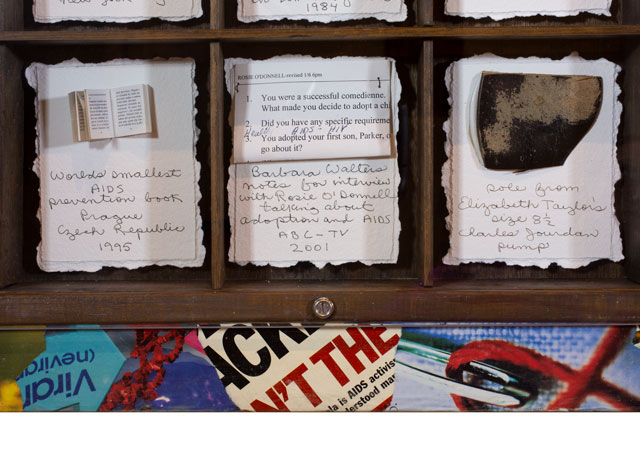 1984
Worlds smallest
AIDS
prevention book
Prague
Czech Republic
1995
ROSIE O'DONNELL revised 1/6 6pm
1. You were a successful comedienne.
What made you decide to adopt a
2. Did you have any specific
AIDS - HIV
3. You adopted your first son, Parker,
go about it?
Barbara Walters
notes for interview
with Rosie O'Donnell
talking about
adoption and AIDS
ABC-TV
2001
sole from
Elizabeth Taylor's
size 8½
Charles Jourdan
pump
Vira
(nevira
ACK
N'T THE
la is AIDS activis
derstood ma